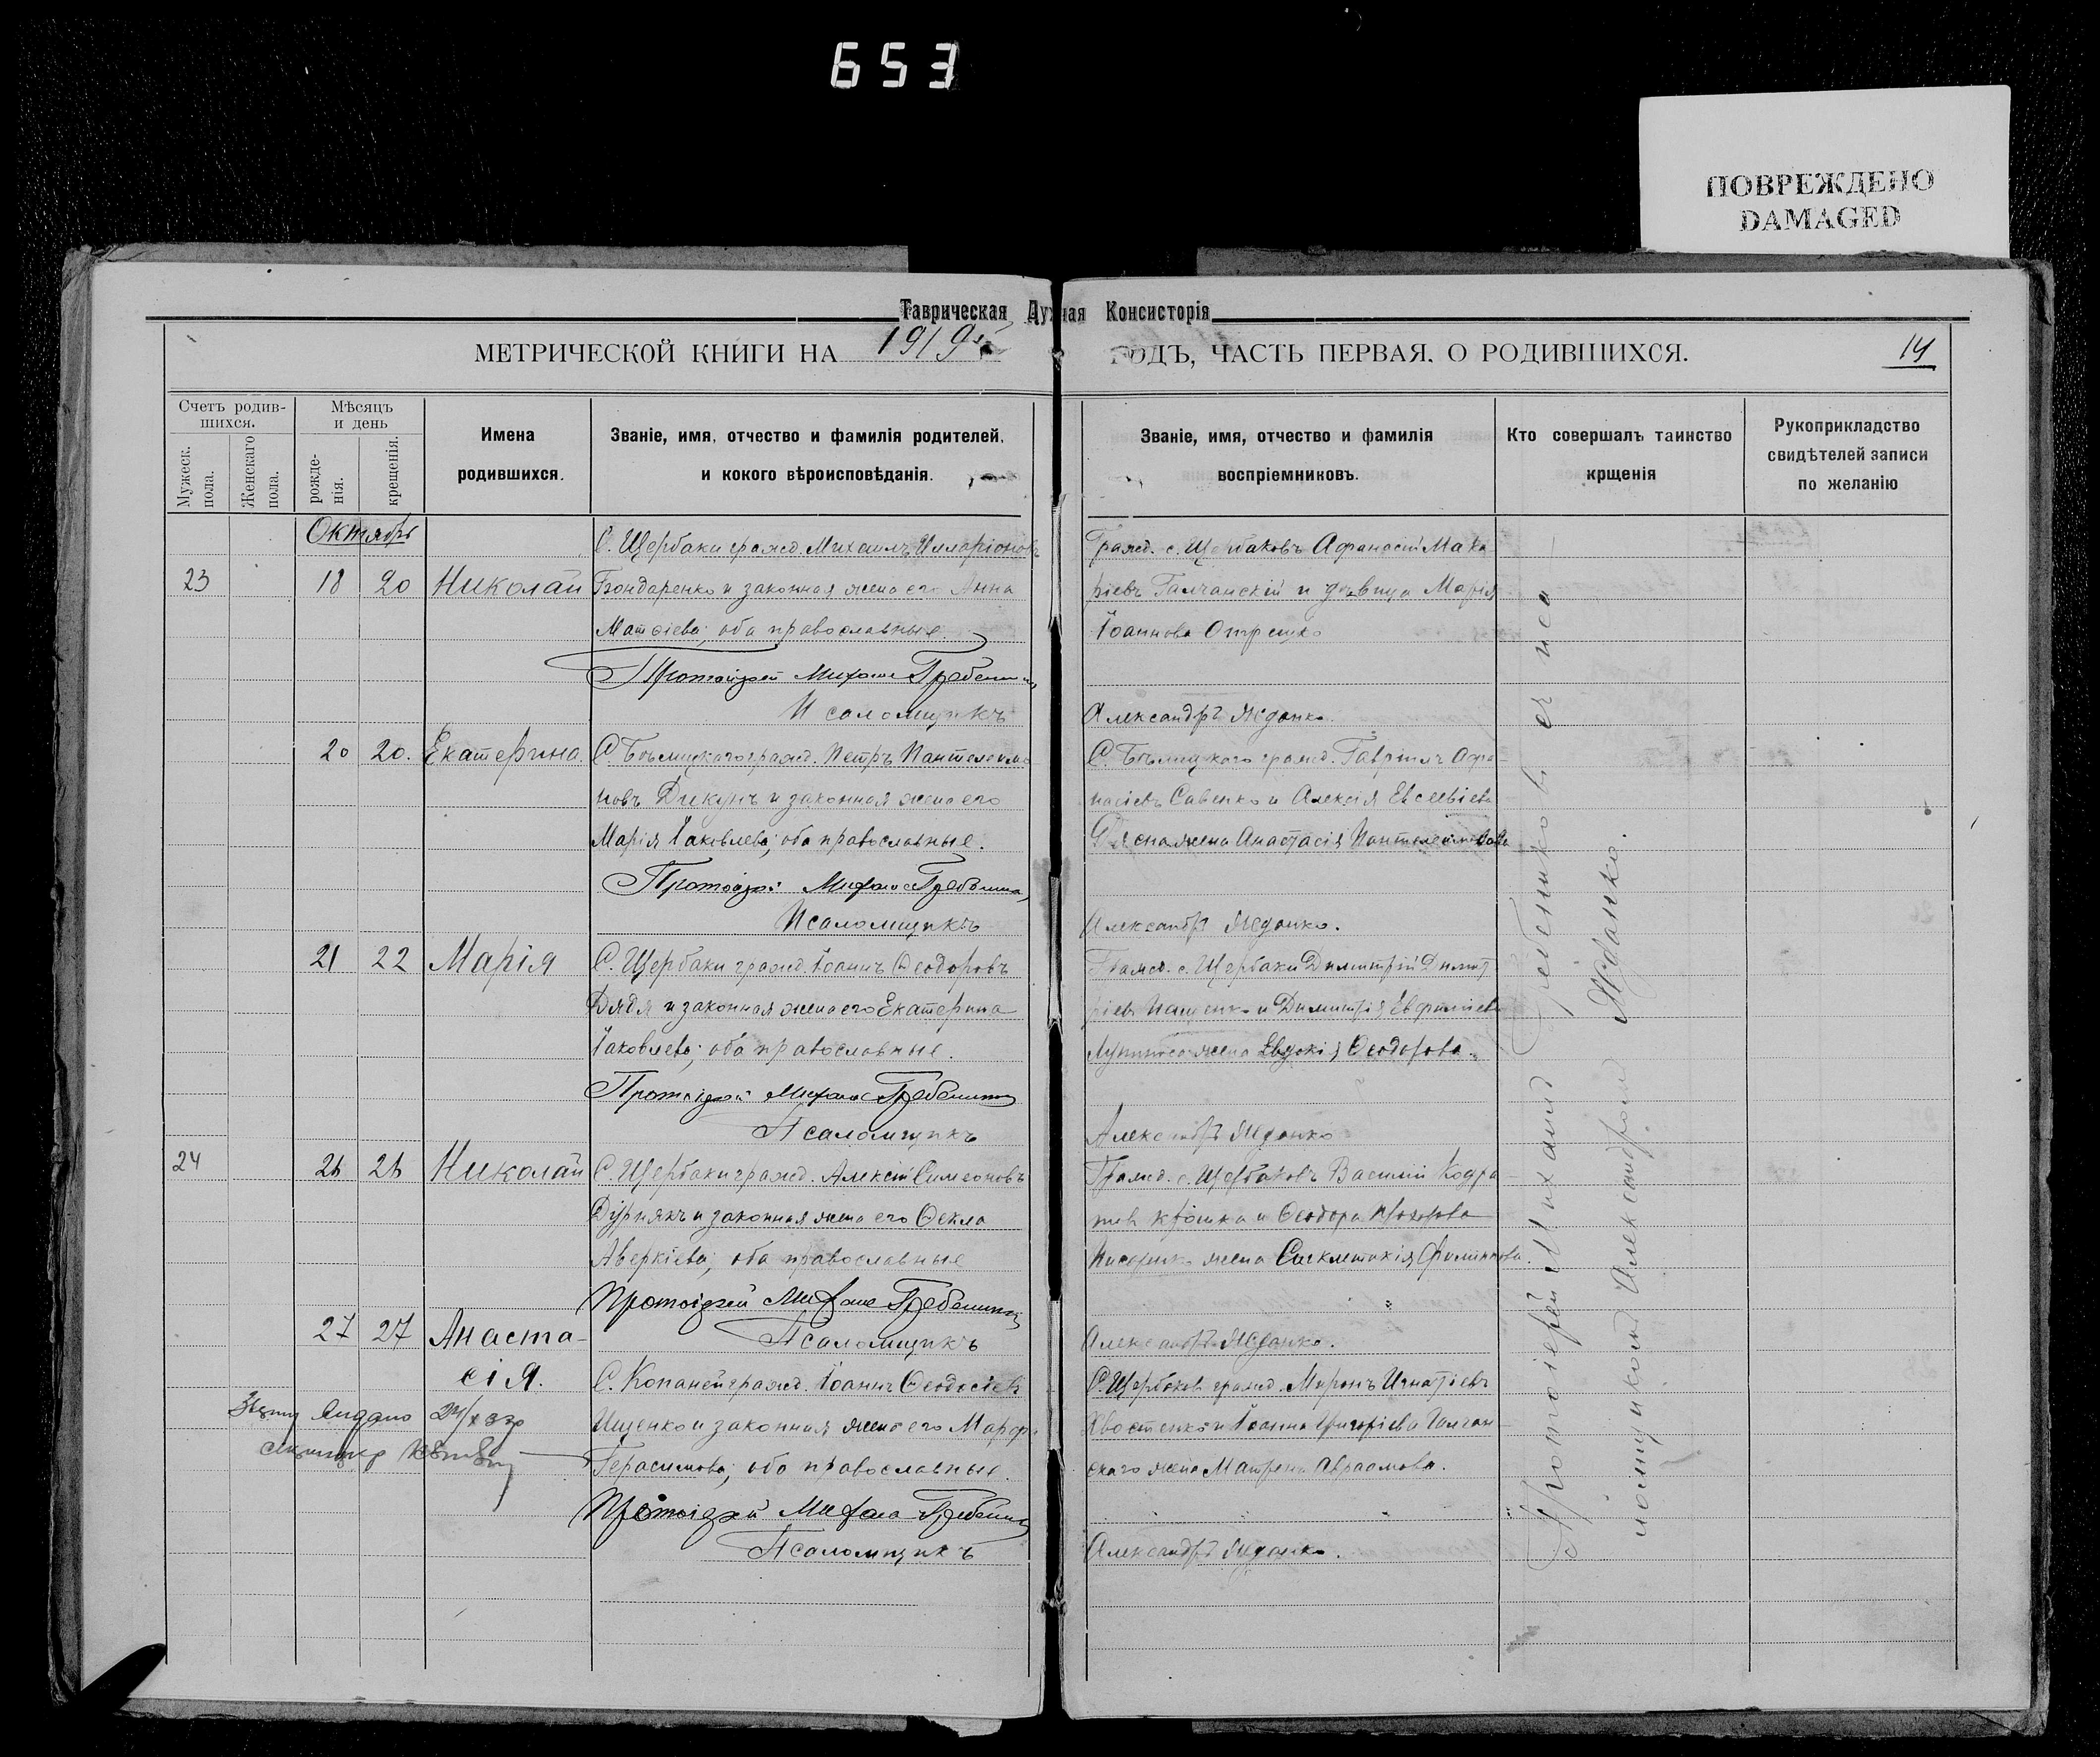 653
ПОВРЕЖДЕНО
DAMAGED
Таврическая Духная Консисторія
МЕТРИЧЕСКОЙ КНИГИ НА 1919 ГОДЪ, ЧАСТЬ ПЕРВАЯ. О РОДИВШИХСЯ.
14
Счетъ родив-
шихся.
Мужеск.
пола.
Женскаго
пола.
Мѣсяцъ
и день
рожде-
нія.
крещенія.
Имена
родившихся.
Званіе, имя, отчество и фамилія родителей,
и кокого вѣроисповѣданія.
Званіе, имя, отчество и фамилія
воспріемниковъ.
Кто совершалъ таинство
крщенія
Рукоприкладство
свидѣтелей записи
по желанію
Октябрь
С. Щербаки гражд. Михаилъ Илларіоновъ
23 18 20 Николай Бондаренко и законная жена его Анна
оба православные.
Протоіерей Михаилъ
Псаломщикъ
Гражд. с. Щербаковъ Афанасій Мака
ріевъ Галчанскій и дѣвица Марія
Іоаннова
Александръ Жданко.
20 20. Екатерина. С. Бѣлицкаго гражд. Петръ Пантелеимо
новъ Дикунъ и законная жена его
Марія Іаковлева; оба православные.
Протоіерей Михаилъ
Псаломщикъ
С. Бѣлицкаго гражд. Гавріилъ Афа-
насіевъ Савенко и Алексія Евсевіева
жена Анастасія Пантелеимонова
Александръ Жданко.
21 22 Марія С. Щербаки гражд. Іоаннъ Ѳеодоровъ
Дядя и законная жена его Екатерина
Іаковлева; оба православные.
Протоіерей Михаилъ
Псаломщикъ
Гражд. с. Щербаки Димитрій Димит
ріевъ Ищенко и Димитрія
жена Евдокія Ѳеодорова.
Александръ Жданко
24 Николай С. Щербаки гражд. Алексій Симеоновъ
Дурнякъ и законная жена его Ѳекла
Аверкіева; оба православные
Протоіерей Михаилъ
Псаломщикъ
Гражд. с. Щербаковъ Василій Кодра
и Ѳеодора
жена
Александръ Жданко.
27 27 Анаста-
сія.
С. Копаней гражд. Іоаннъ Ѳеодосіевъ
Ищенко и законная жена его Марфа
Герасимова; оба православные.
Протоіерей Михаилъ
Псаломщикъ
С. Щербаковъ гражд. Миронъ Игнатіевъ
Хвостенко и Іоанна Григоріева Галчан
скаго жена Матрона Авраамова.
Александръ Жданко.
Протоіерей Михаилъ Гребенниковъ съ пса
ломщикомъ Александромъ Жданко.